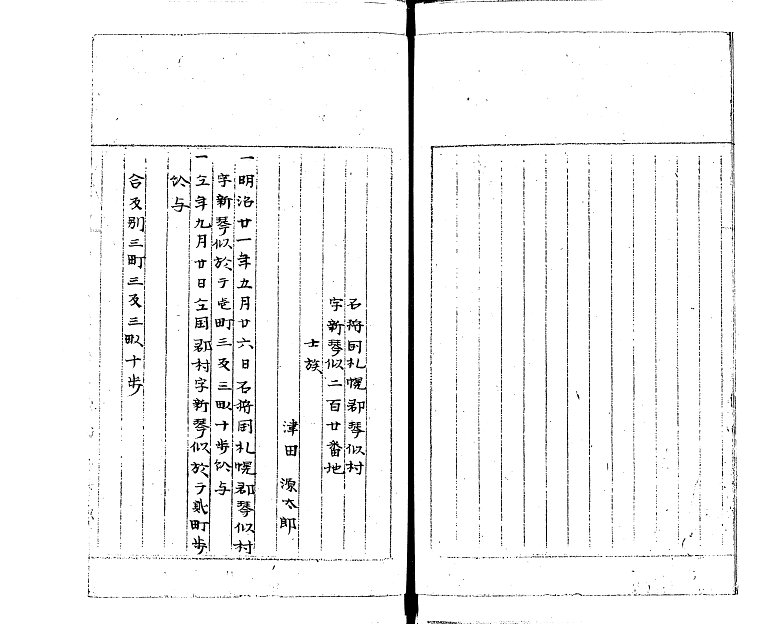 石狩国札幌郡琴似村
字新琴似二百廿番地
士族
津田 源太郎
一明治廿一年五月廿六日石狩国札幌郡琴似村
字新琴似於テ壱町三反三畝十歩給与
一仝年九月廿日仝国郡村字新琴似於テ貮町歩
給与
合反別三町三反三畝十歩